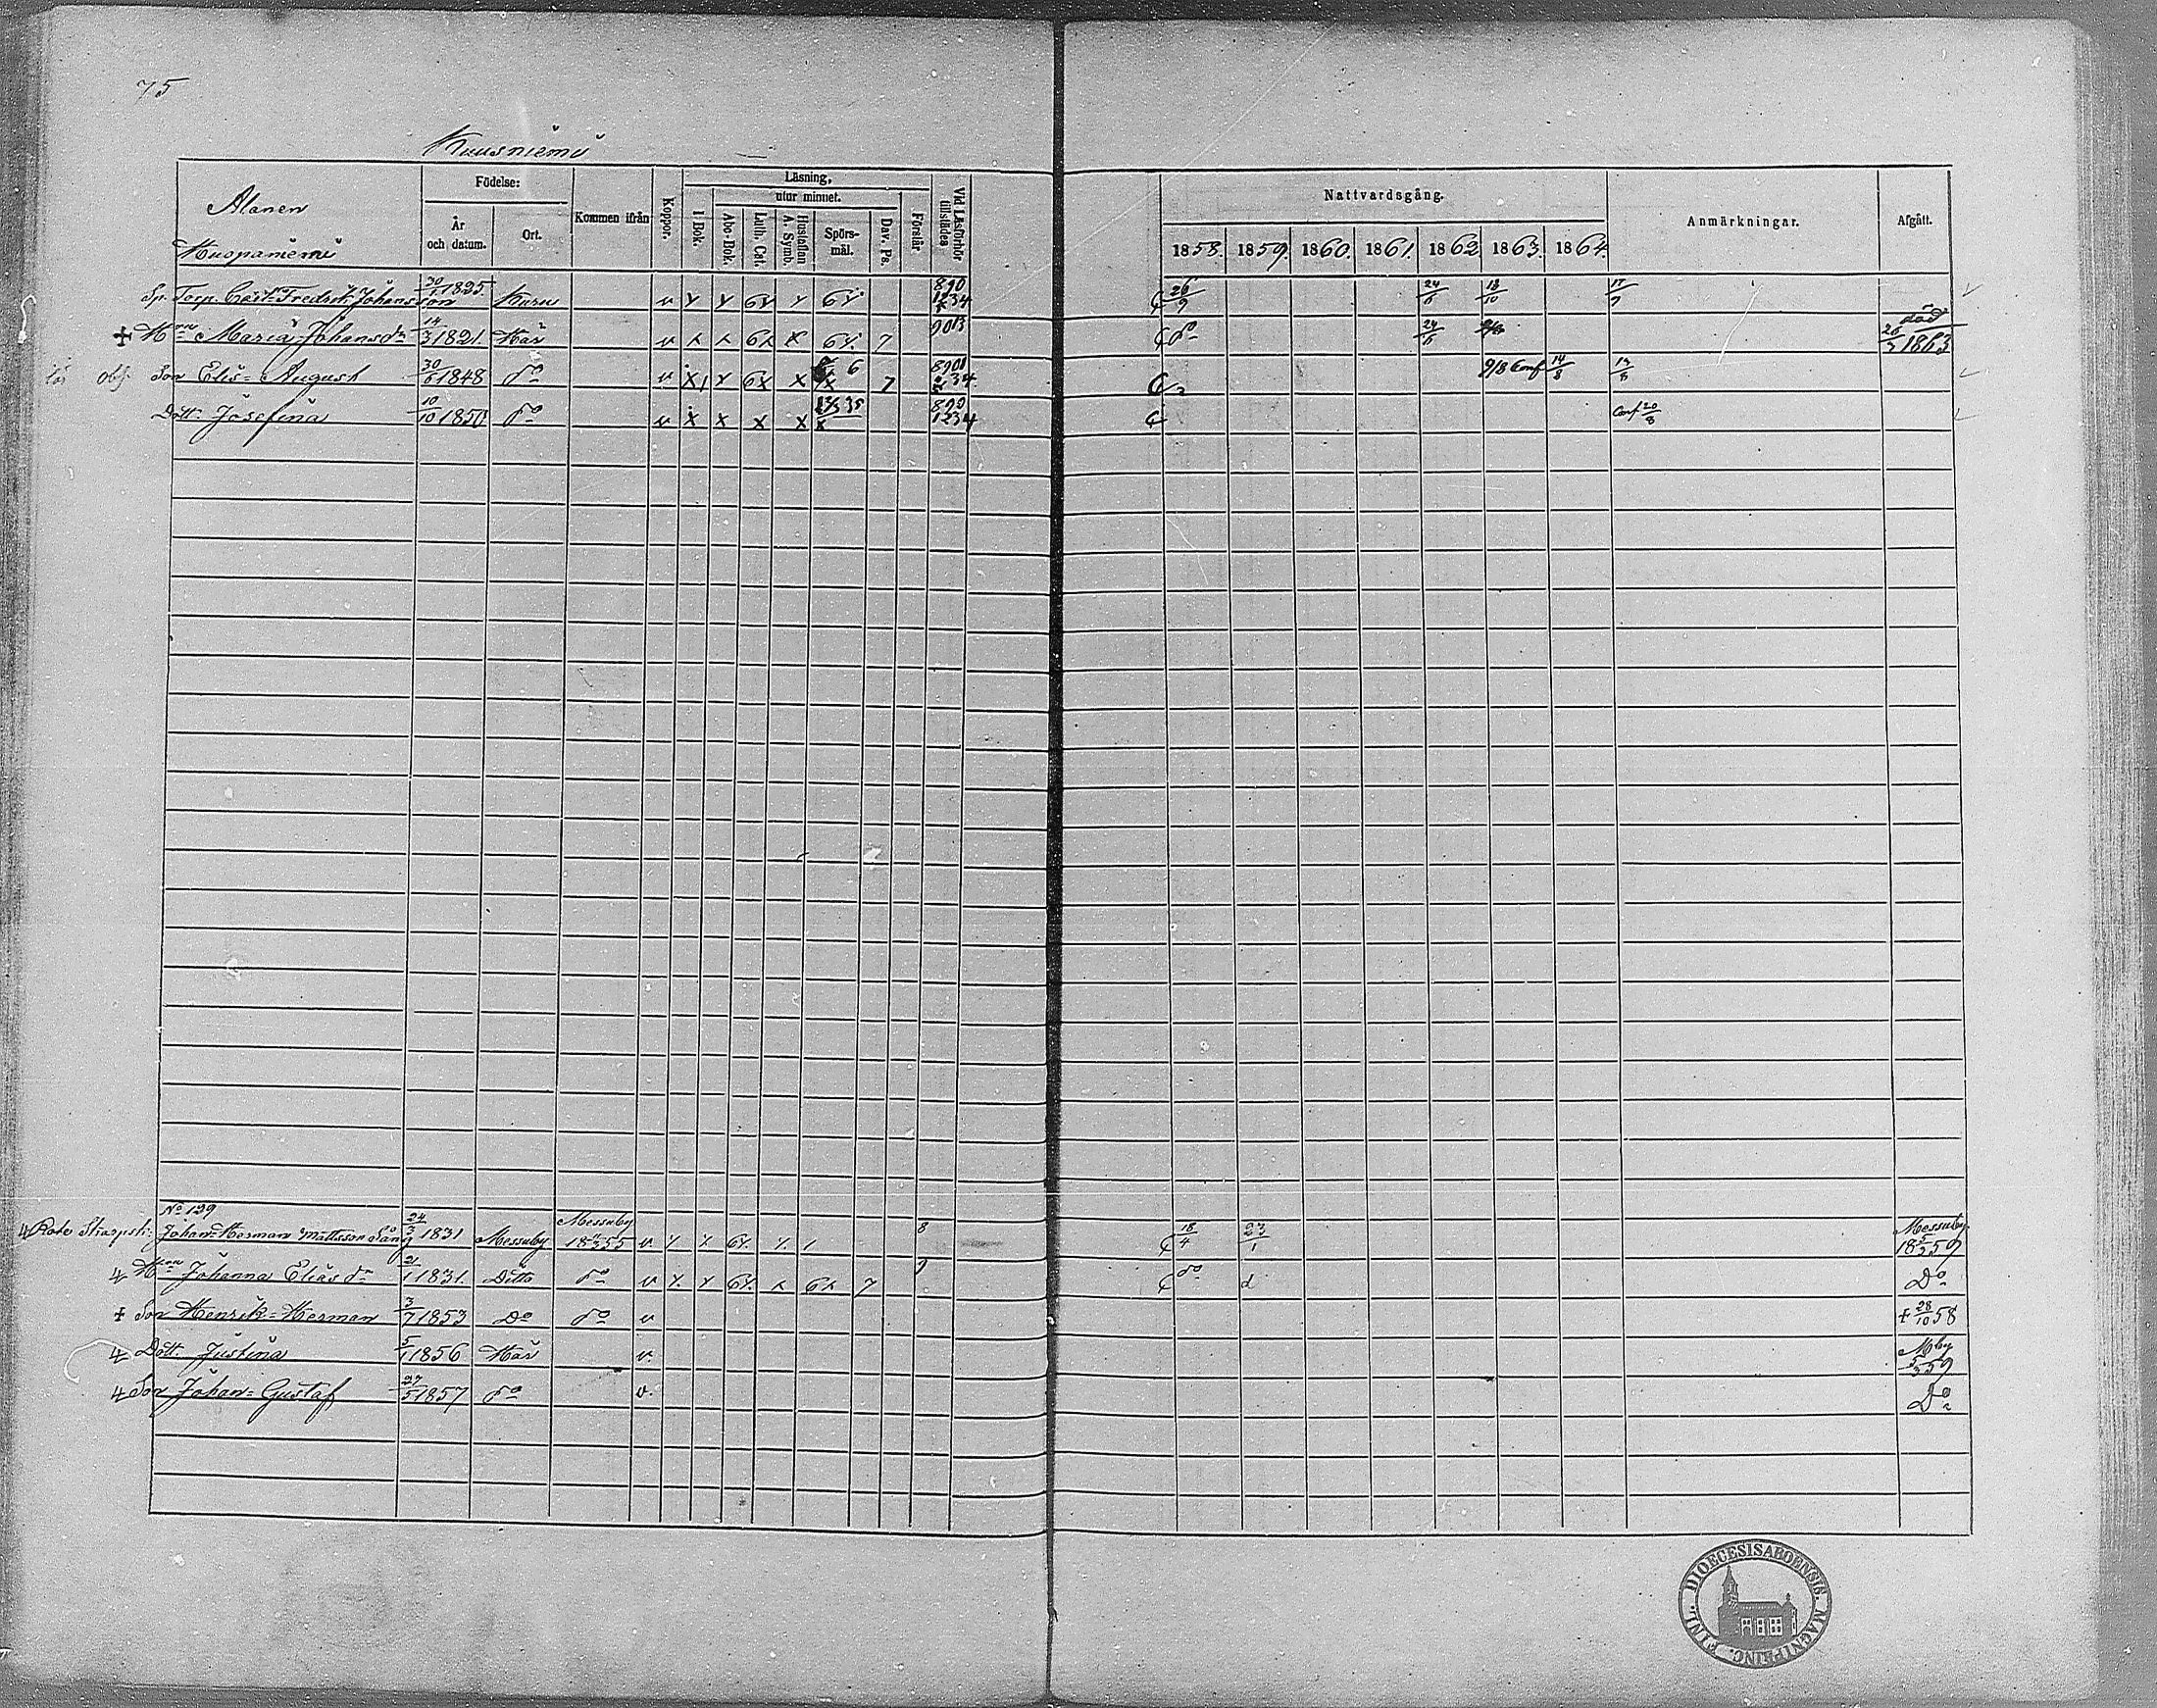 75
Kuusniemi
Alanen
Kuopaniemi
Födelse:
År och datum.
Ort.
Kommen ifrån
Koppor.
Läsning,
utur minnet.
I Bok.
Abc-Bok.
Luth. Cat.
Hustaflan A. Symb.
Spörs-mål.
Dav. Ps.
Förstår
Vid Läsförhör tillstädes
Nattvardsgång.
1858. 1859. 1860. 1861. 1862 1863. 1864.
Anmärkningar.
Afgått.
Torp. Carl Fredrik Johansson 1825. Kuru v 26/9 24/6 18/10
Hn Maria Johansdr 14/3 1821. Här v 6x 7 do 24/6 död 26/3 1863
obs Son Elis=August 30/6 1848 do v 9/8 Conf 14/8
Dott. Josefina 10/10 1850 do v x x x x Conf 20/8
No 129
Rote Skarpsk: Johan-Herman Mattsson Sång 24/3 1831 Messuby Messuby 1855 v 8 18/4 23/1 Messuby 18 5/3 59
Hn Johanna Eliäsdr 21/1 1831. Ditto do v 7 do d Do
+ Son Henrik=Herman 3/7 1853 Do do v + 28/10 58
Dott. Justina 5/1 1856 Här v. Mby 5/3 59
Son Johan=Gustaf 27/5 1857 do v. Do
FINL. DIOECESIS ABOENSIS. MAGNI PRINC.